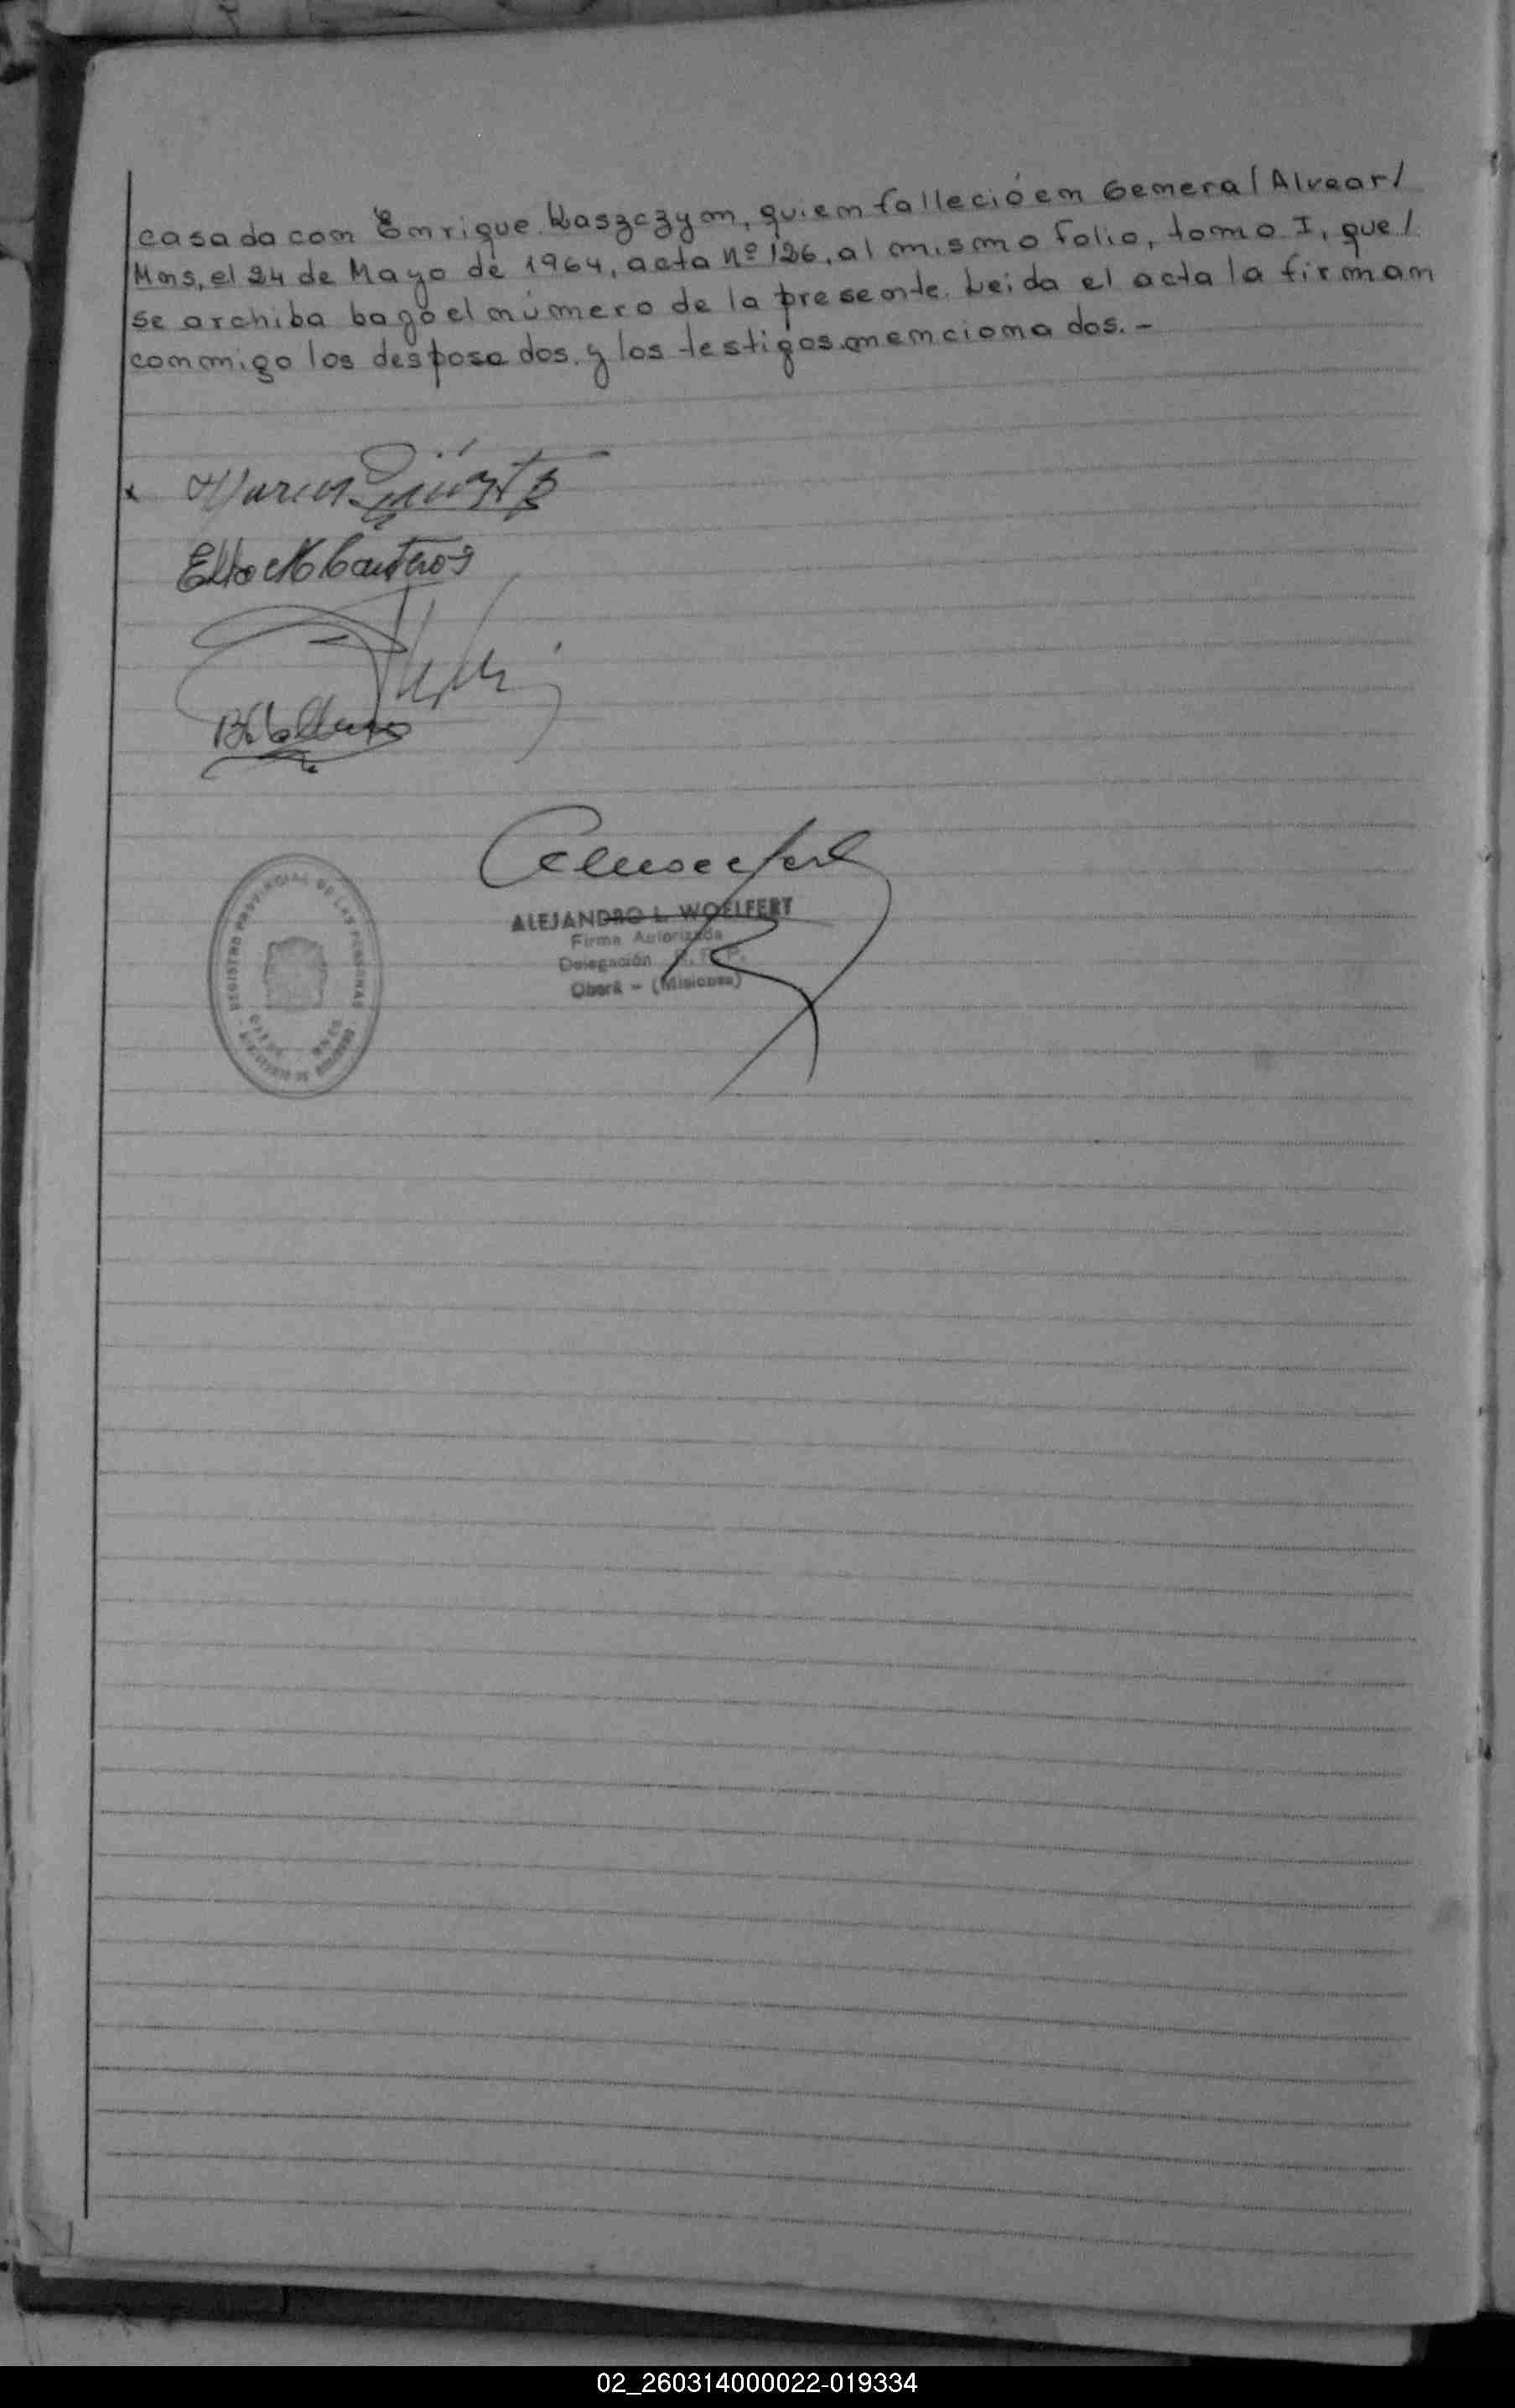 casada con Enrique Waszczyon, quien falleció en General Alvear/
Mns, el 24 de Mayo de 1964, acta nº 126, al mismo folio, tomo I, que/
se archiba bajo el número de la presente. Leida el acta la firman
conmigo los desposados y los testigos mencionados.-
x
Elba M Canteros
ALEJANDRO L. WOELFERT
Firma Autorizada
Delegación R. P. P.
Oberá - (Misiones)
REGISTRO PROVINCIAL DE LAS PERSONAS
02_260314000022-019334